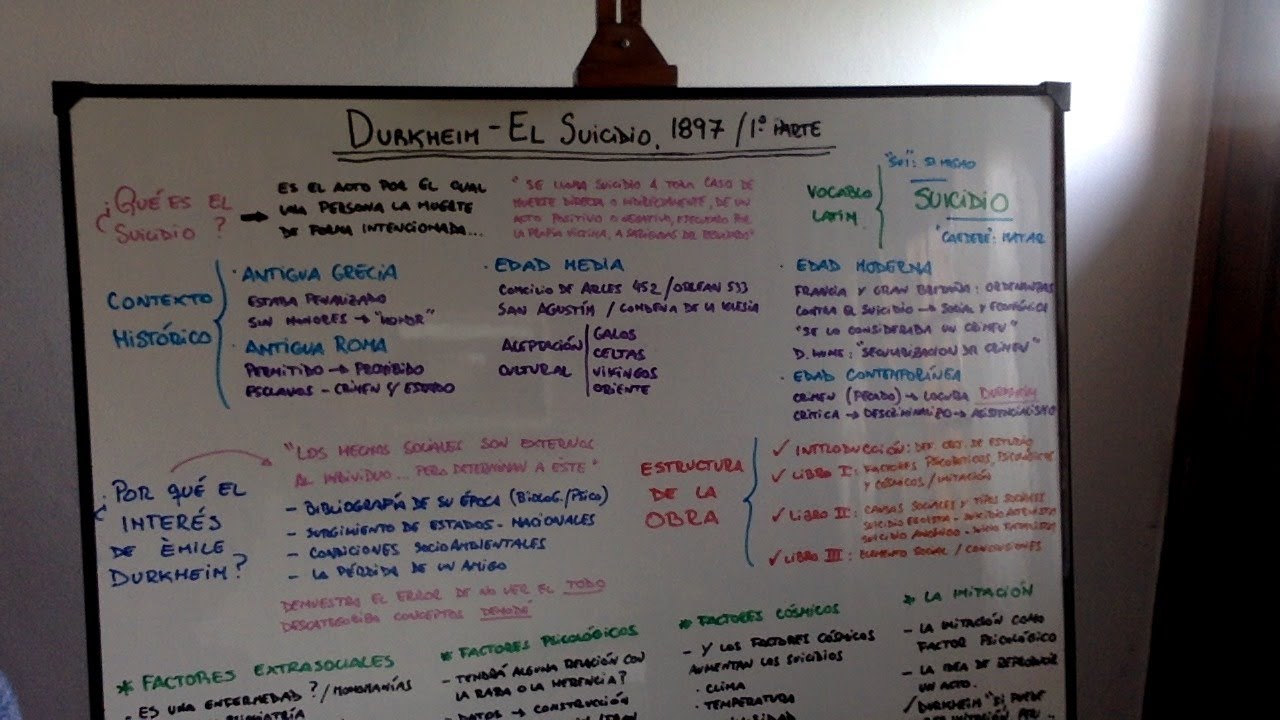 DURKHEIM - EL SUICIDIO. 1897 / 1º PARTE
¿QUÉ ES EL
SUICIDIO?
ES EL ACTO POR EL CUAL
UNA PERSONA LA MUERTE
DE FORMA INTENCIONADA...
"SE LLAMA SUICIDIO A TODA CASO DE
MUERTE DIRECTA O INDIRECTAMENTE, DE UN
ACTO POSITIVO O NEGATIVO, EJECUTADO POR
LA PROPIA VÍCTIMA, A SABIENDAS DEL RESULTADO"
VOCABLO
LATIM
"SUI": SI MISMO
SUICIDIO
"CAEDERE": MATAR
CONTEXTO
HISTÓRICO
· ANTIGUA GRECIA
ESTABA PENALIZADO
SIN HONORES → "HONOR"
· ANTIGUA ROMA
PERMITIDO → PROHIBIDO
ESCLAVOS - CRIMEN Y ESTADO
· EDAD MEDIA
CONCILIO DE ARLES 452 / ORLEAN 533
SAN AGUSTÍN / CONDENA DE LA IGLESIA
ACEPTACIÓN
CULTURAL
GALOS
CELTAS
VIKINGOS
ORIENTE
· EDAD MODERNA
FRANCIA Y GRAN BRETAÑA: ORDENANZAS
CONTRA EL SUICIDIO → SOCIAL Y ECONÓMICA
"SE LO CONSIDERADA UN CRIMEN"
D. HUME: "SECULARIZACION DEL CRIMEN"
· EDAD CONTEMPORÍNEA
CRIMEN (PECADO) → LOCURA DURKHEIM
CRÍTICA → DESCRIMINALIZO → ASISTENCIALISMO
¿POR QUÉ EL
INTERÉS
DE ÈMILE
DURKHEIM?
"LOS HECHOS SOCIALES SON EXTERNOS
AL INDIVIDUO... PERO DETERMINAN A ÉSTE"
- BIBLIOGRAFÍA DE SU ÉPOCA (BIOLOG./PSICO)
- SURGIMIENTO DE ESTADOS - NACIONALES
- CONDICIONES SOCIOAMBIENTALES
- LA PÉRDIDA DE UN AMIGO
DEMUESTRA EL ERROR DE NO VER EL TODO
DESCATEGORIZA CONCEPTOS DEMODÉ
ESTRUCTURA
DE LA
OBRA
✓ INTRODUCCIÓN: DEF. OBJ. DE ESTUDIO
✓ LIBRO I: FACTORES PSICOLÓGICOS,
Y CÓSMICOS / IMITACIÓN
✓ LIBRO II: CAUSAS SOCIALES Y TIPOS SOCIALES
SUICIDIO EGOISTA - SUICIDIO ALTRUISTA
SUICIDIO ANÓMICO - SUICIDIO FATALISTA
✓ LIBRO III: ELEMENTO SOCIAL / CONCLUSIONES
* FACTORES EXTRASOCIALES
- ES UNA ENFERMEDAD? / MONOMANÍAS
PSIQUIATRÍA
* FACTORES PSICOLÓGICOS
- TENDRÁ ALGUNA RELACIÓN CON
LA RAZA O LA HERENCIA?
DATOS → CONSTRUCCIÓN
* FACTORES CÓSMICOS
- Y LOS FACTORES CÓSMICOS
AUMENTAN LOS SUICIDIOS
· CLIMA
· TEMPERATURA
* LA IMITACIÓN
- LA IMITACIÓN COMO
FACTOR PSICOLÓGICO
- LA IDEA DE REPRODUCIR
UN ACTO.
DURKHEIM "SI PUEDE